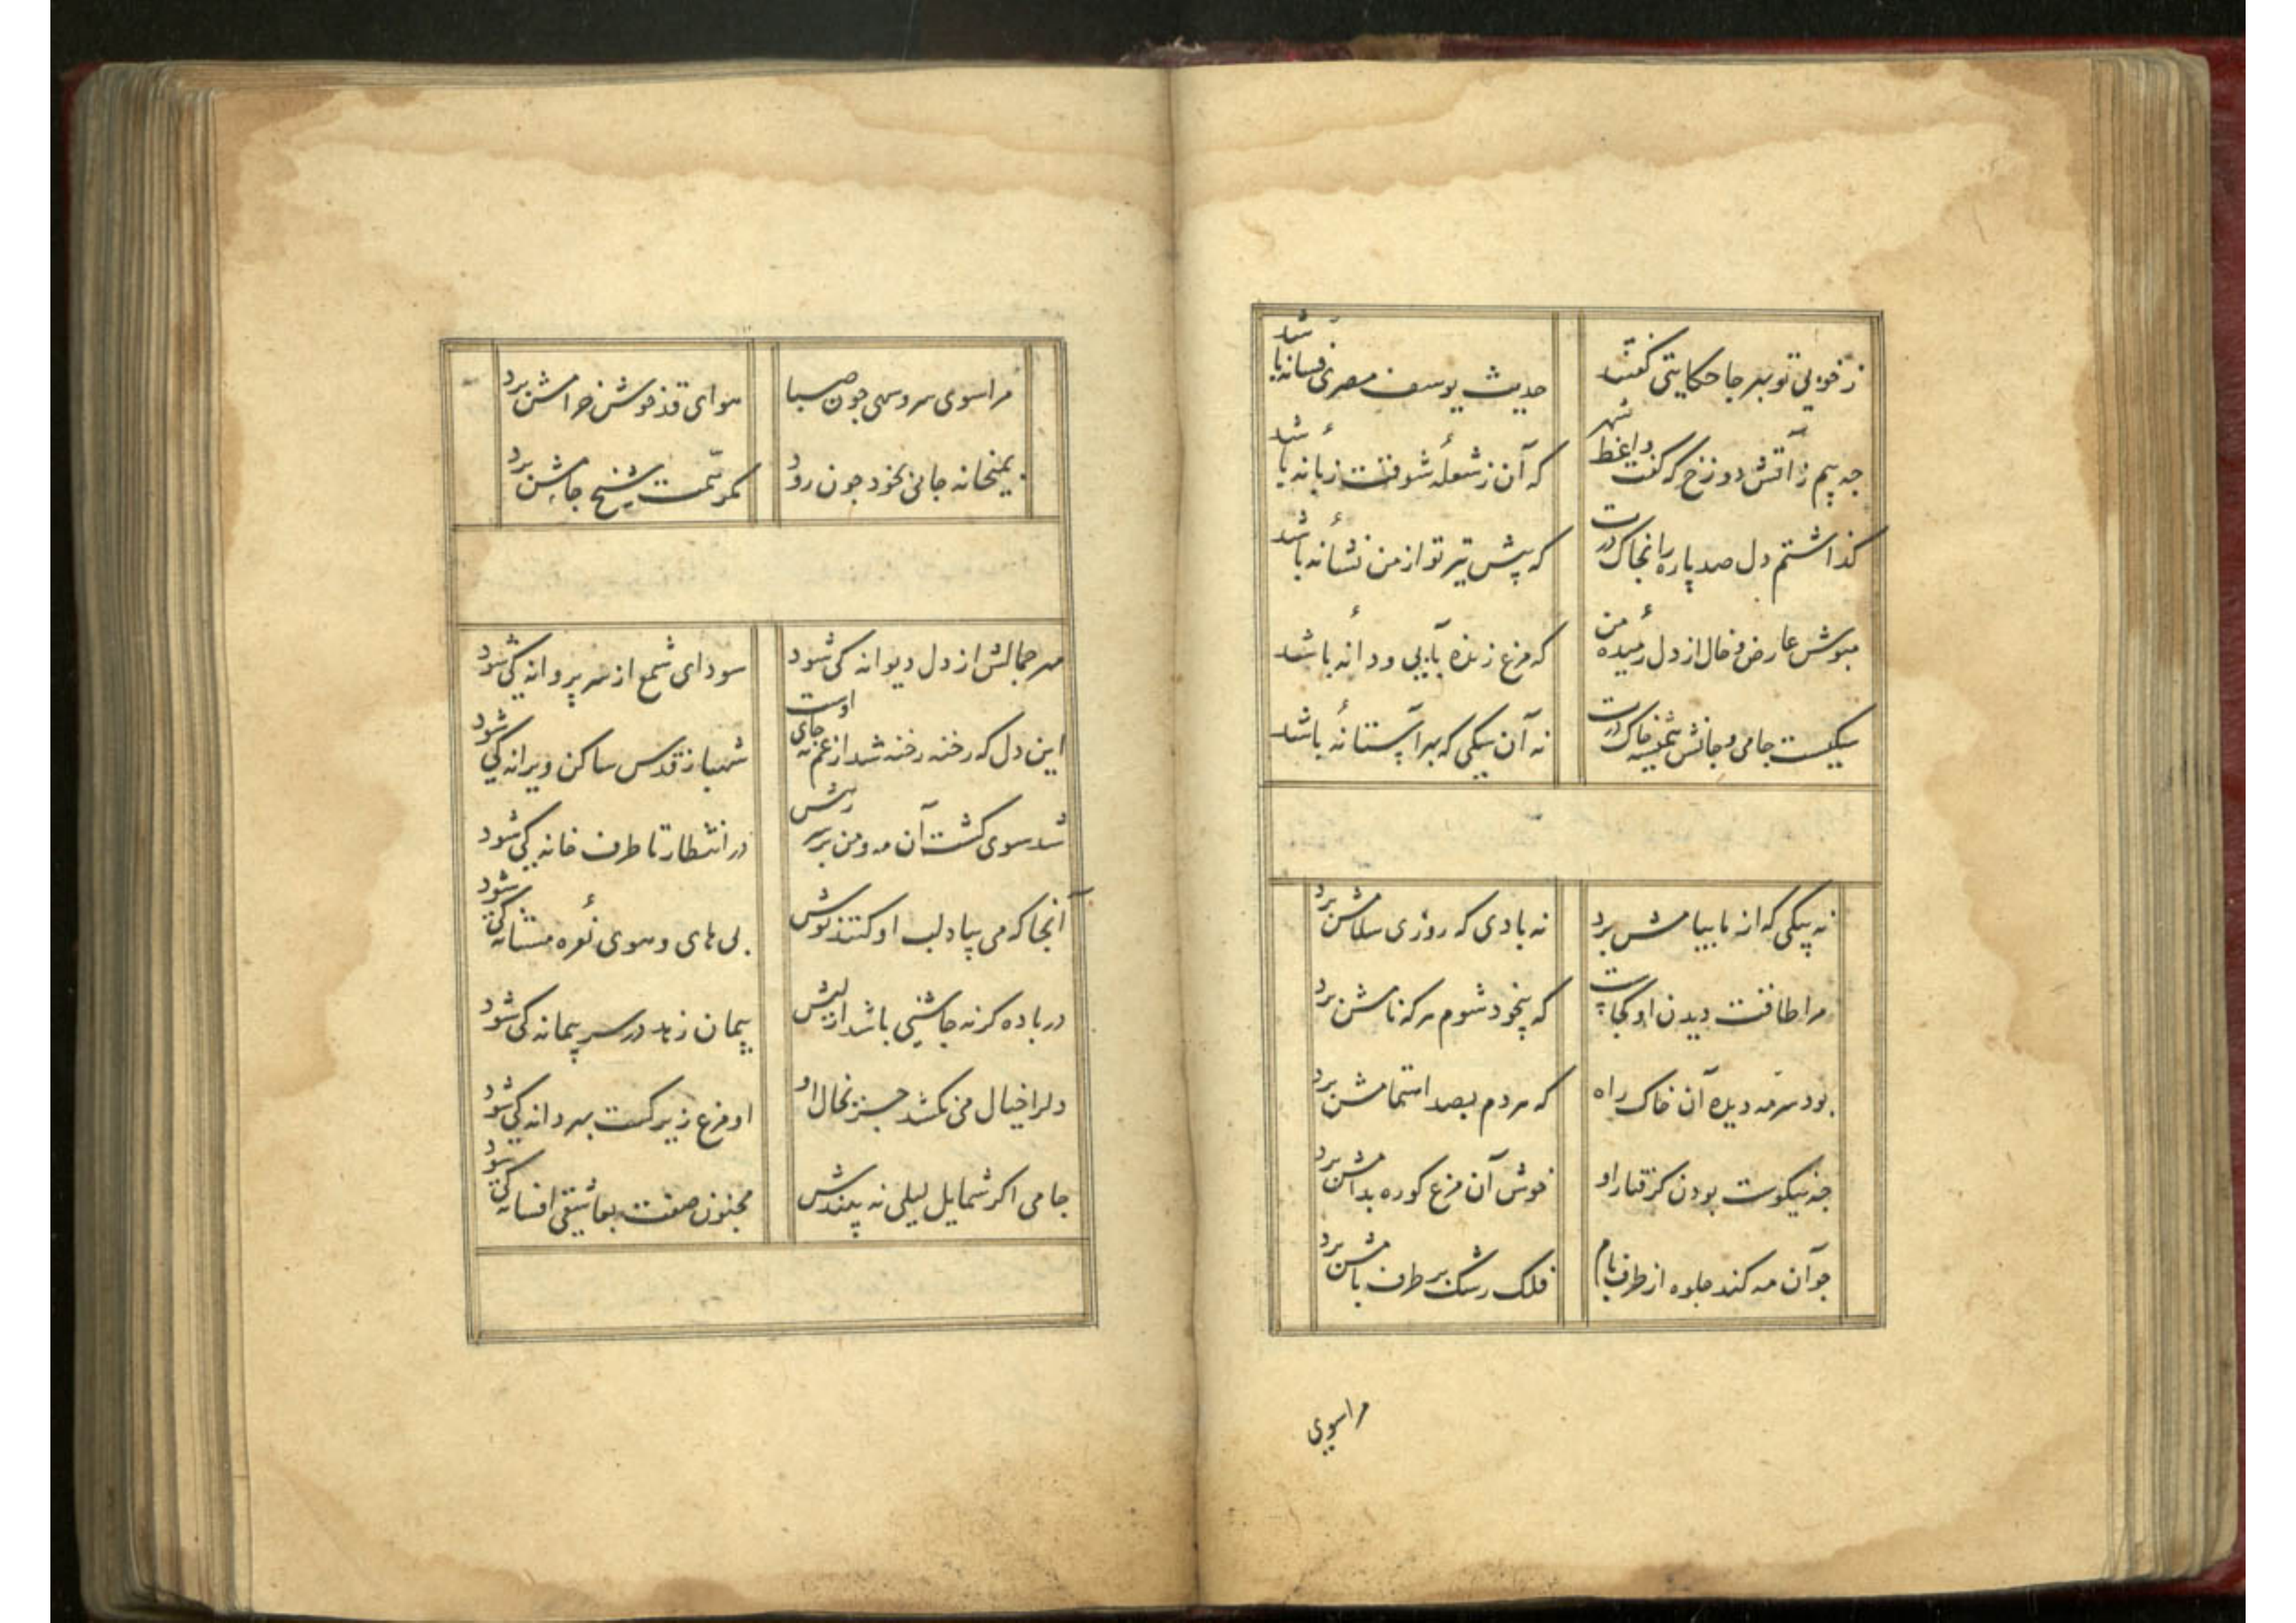 ز خوبی تو بهر جا حکایتی گفتند
حدیث یوسف مصری فسانه باشد
چه بیم ز آتش دوزخ که گفت واعظ شهر
که آن ز شعلهٔ شوقت زبانهٔ باشد
گذاشتم دل صد پاره را بخاک درت
که پیش تیر تو از من نشانهٔ باشد
مپوش عارض و خال از دل رمیدهٔ من
که مرغ زنده بآبی و دانهٔ باشد
سگیست جامی و جانش خاک درت
نه آن سگی که بهر آستانهٔ باشد
نه پیکی که از ما پیامش برد
نه بادی که روزی سلامش برد
مرا طاقت دیدن او کجاست
که بیخود شوم هر که نامش برد
بود سرمه دیده آن خاک راه
که مردم بصد اهتمامش برد
چه نیکوست بودن گرفتار او
خوش آن مرغ کو ره بدامش برد
چو آن مه کند جلوه از طرف بام
فلک رشک بر طرف بامش برد
مرا سوی
مرا سوی سرو سهی چون صبا
هوای قد خوش خرامش برد
بمیخانه جامی بخود چون رود
مگر همت شیخ جامش برد
مهر جمالش از دل دیوانه کی شود
سودای شمع از سر پروانه کی شود
این دل که رخنه رخنه شد از غم نه جای اوست
شهباز قدس ساکن ویرانه کی شود
شد سوی کشت آن مه و من بر سر رهش
در انتظار تا طرف خانه کی شود
آنجا که می بیاد لب او کنند نوش
بی های و هوی نعرهٔ مستانه کی شود
در باده گر نه چاشنی باشد از لبش
پیمان زهد در سر پیمانه کی شود
دلرا خیال می نکشد جز بخال او
او مرغ زیرکست بهر دانه کی شود
جامی اگر شمایل لیلی نه بیندش
مجنون صفت بعاشقی افسانه کی شود